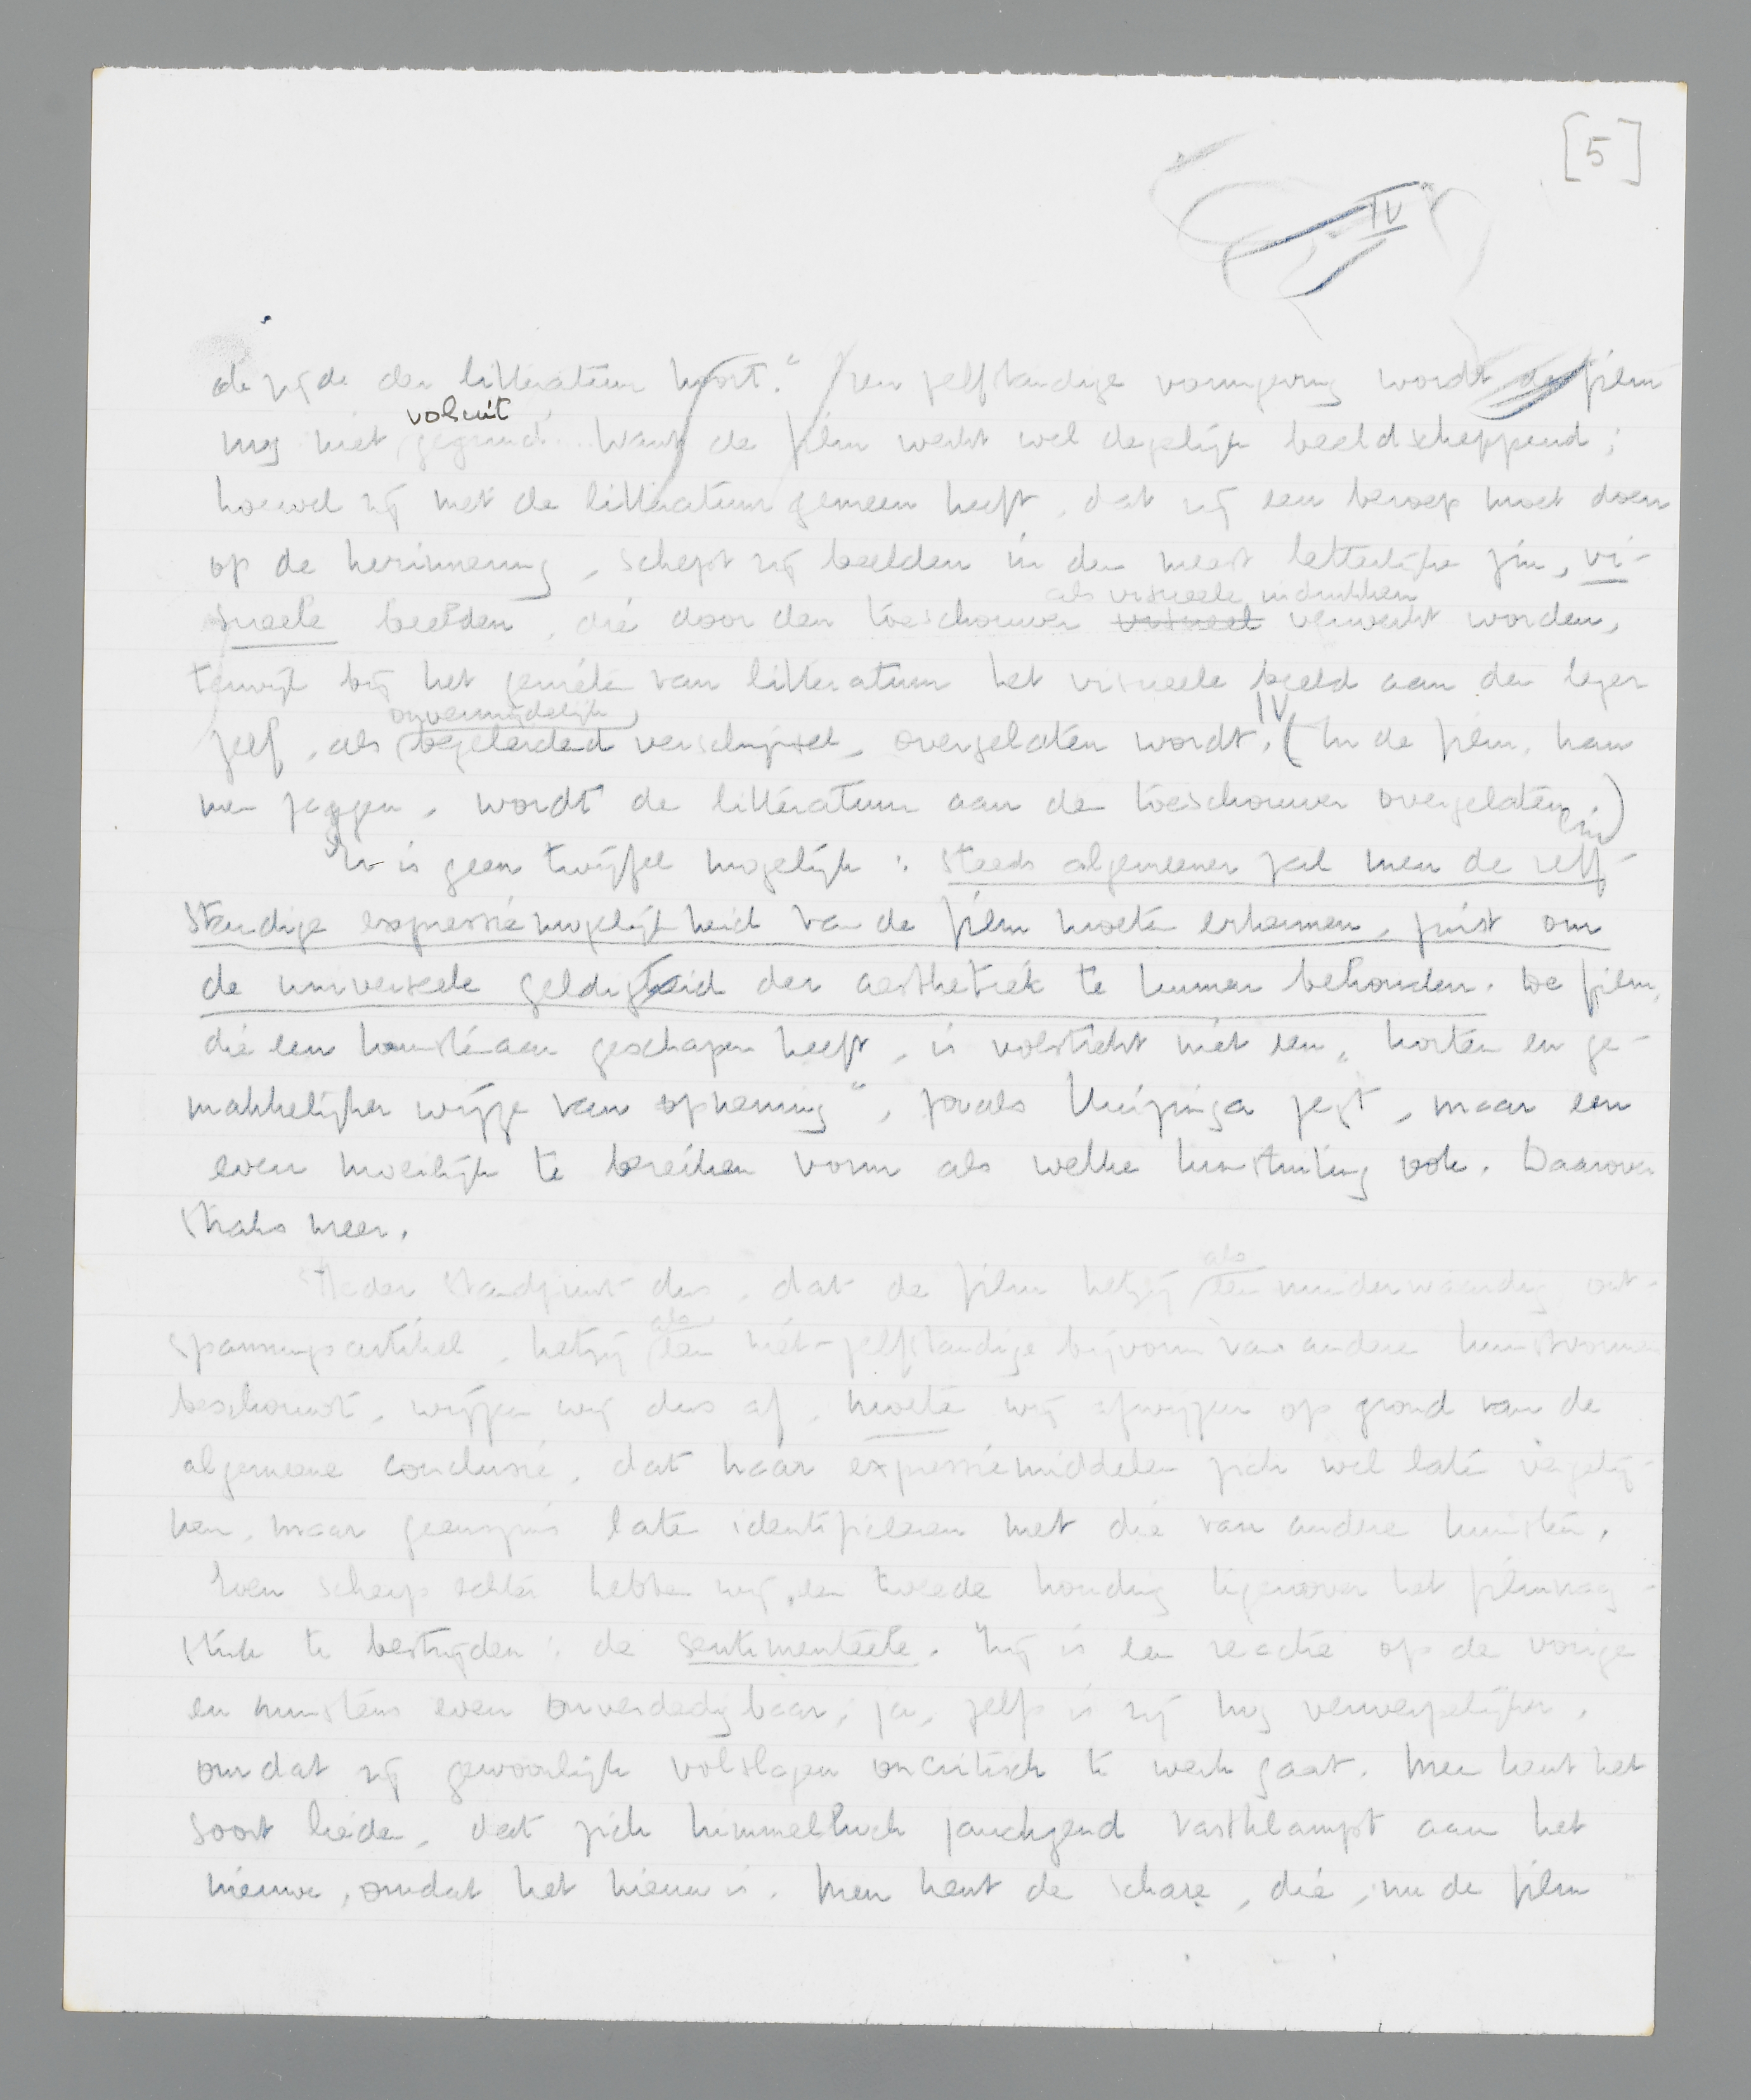 [5]
IV
de zijde der litteratuur hoort." Een zelfstandige vormgeving wordt de film
nog niet gegund. Want de film werkt wel degelijk beeldscheppend;
voluit
hoewel zij met de litteratuur gemeen heeft, dat zij een beroep moet doen
op de herinnering, schept zij beelden in den meest letterlijke zin, vi-
als visueele indrukken
sueele beelden, die door den toeschouwer visueel verwerkt worden,
terwijl bij het genieten van litteratuur het visueele beeld aan den lezer
onvermijdelijk IV
zelf, als begeleidend verschijnsel, overgelaten wordt. (In de film, kan
men zeggen, wordt de litteratuur aan den toeschouwer overgelaten.)
Er is geen twijfel mogelijk: steeds algemeener zal men de zelf-
standige expressiemogelijkheid van de film moeten erkennen, juist om
de universeele geldigheid der aesthetiek te kunnen behouden. De film,
die een kunstenaar geschapen heeft, is volstrekt niet een "korten en ge-
makkelijken wijze van opneming", zooals Huizinga zegt, maar een
even moeilijk te bereiken vorm als welke kunstuiting ook. Daarover
straks meer.
Ieder standpunt dus, dat de film hetzij een minderwaardig ont-
als
spanningsartikel, hetzij een niet-zelfstandige bijvorm van andere kunstvormen
als
beschouwt, wijzen wij dus af, moeten wij afwijzen op grond van de
algemeene conclusie, dat haar expressiemiddelen zich wel laten vergelij-
ken, maar geenszins laten identificeren met die van andere kunsten.
Even scherp echter hebben wij een tweede houding tegenover het filmvraag-
stuk te bestrijden: de sentimenteele. Zij is een reactie op de vorige
en minstens even onverdedigbaar; ja, zelfs is zij nog verwerpelijker,
omdat zij gewoonlijk volslagen oncritisch te werk gaat. Men kent het
soort lieden, dat zich himmelhoch jauchzend vastklampt aan het
nieuwe, omdat het nieuw is. Men kent de schare, die, nu de film